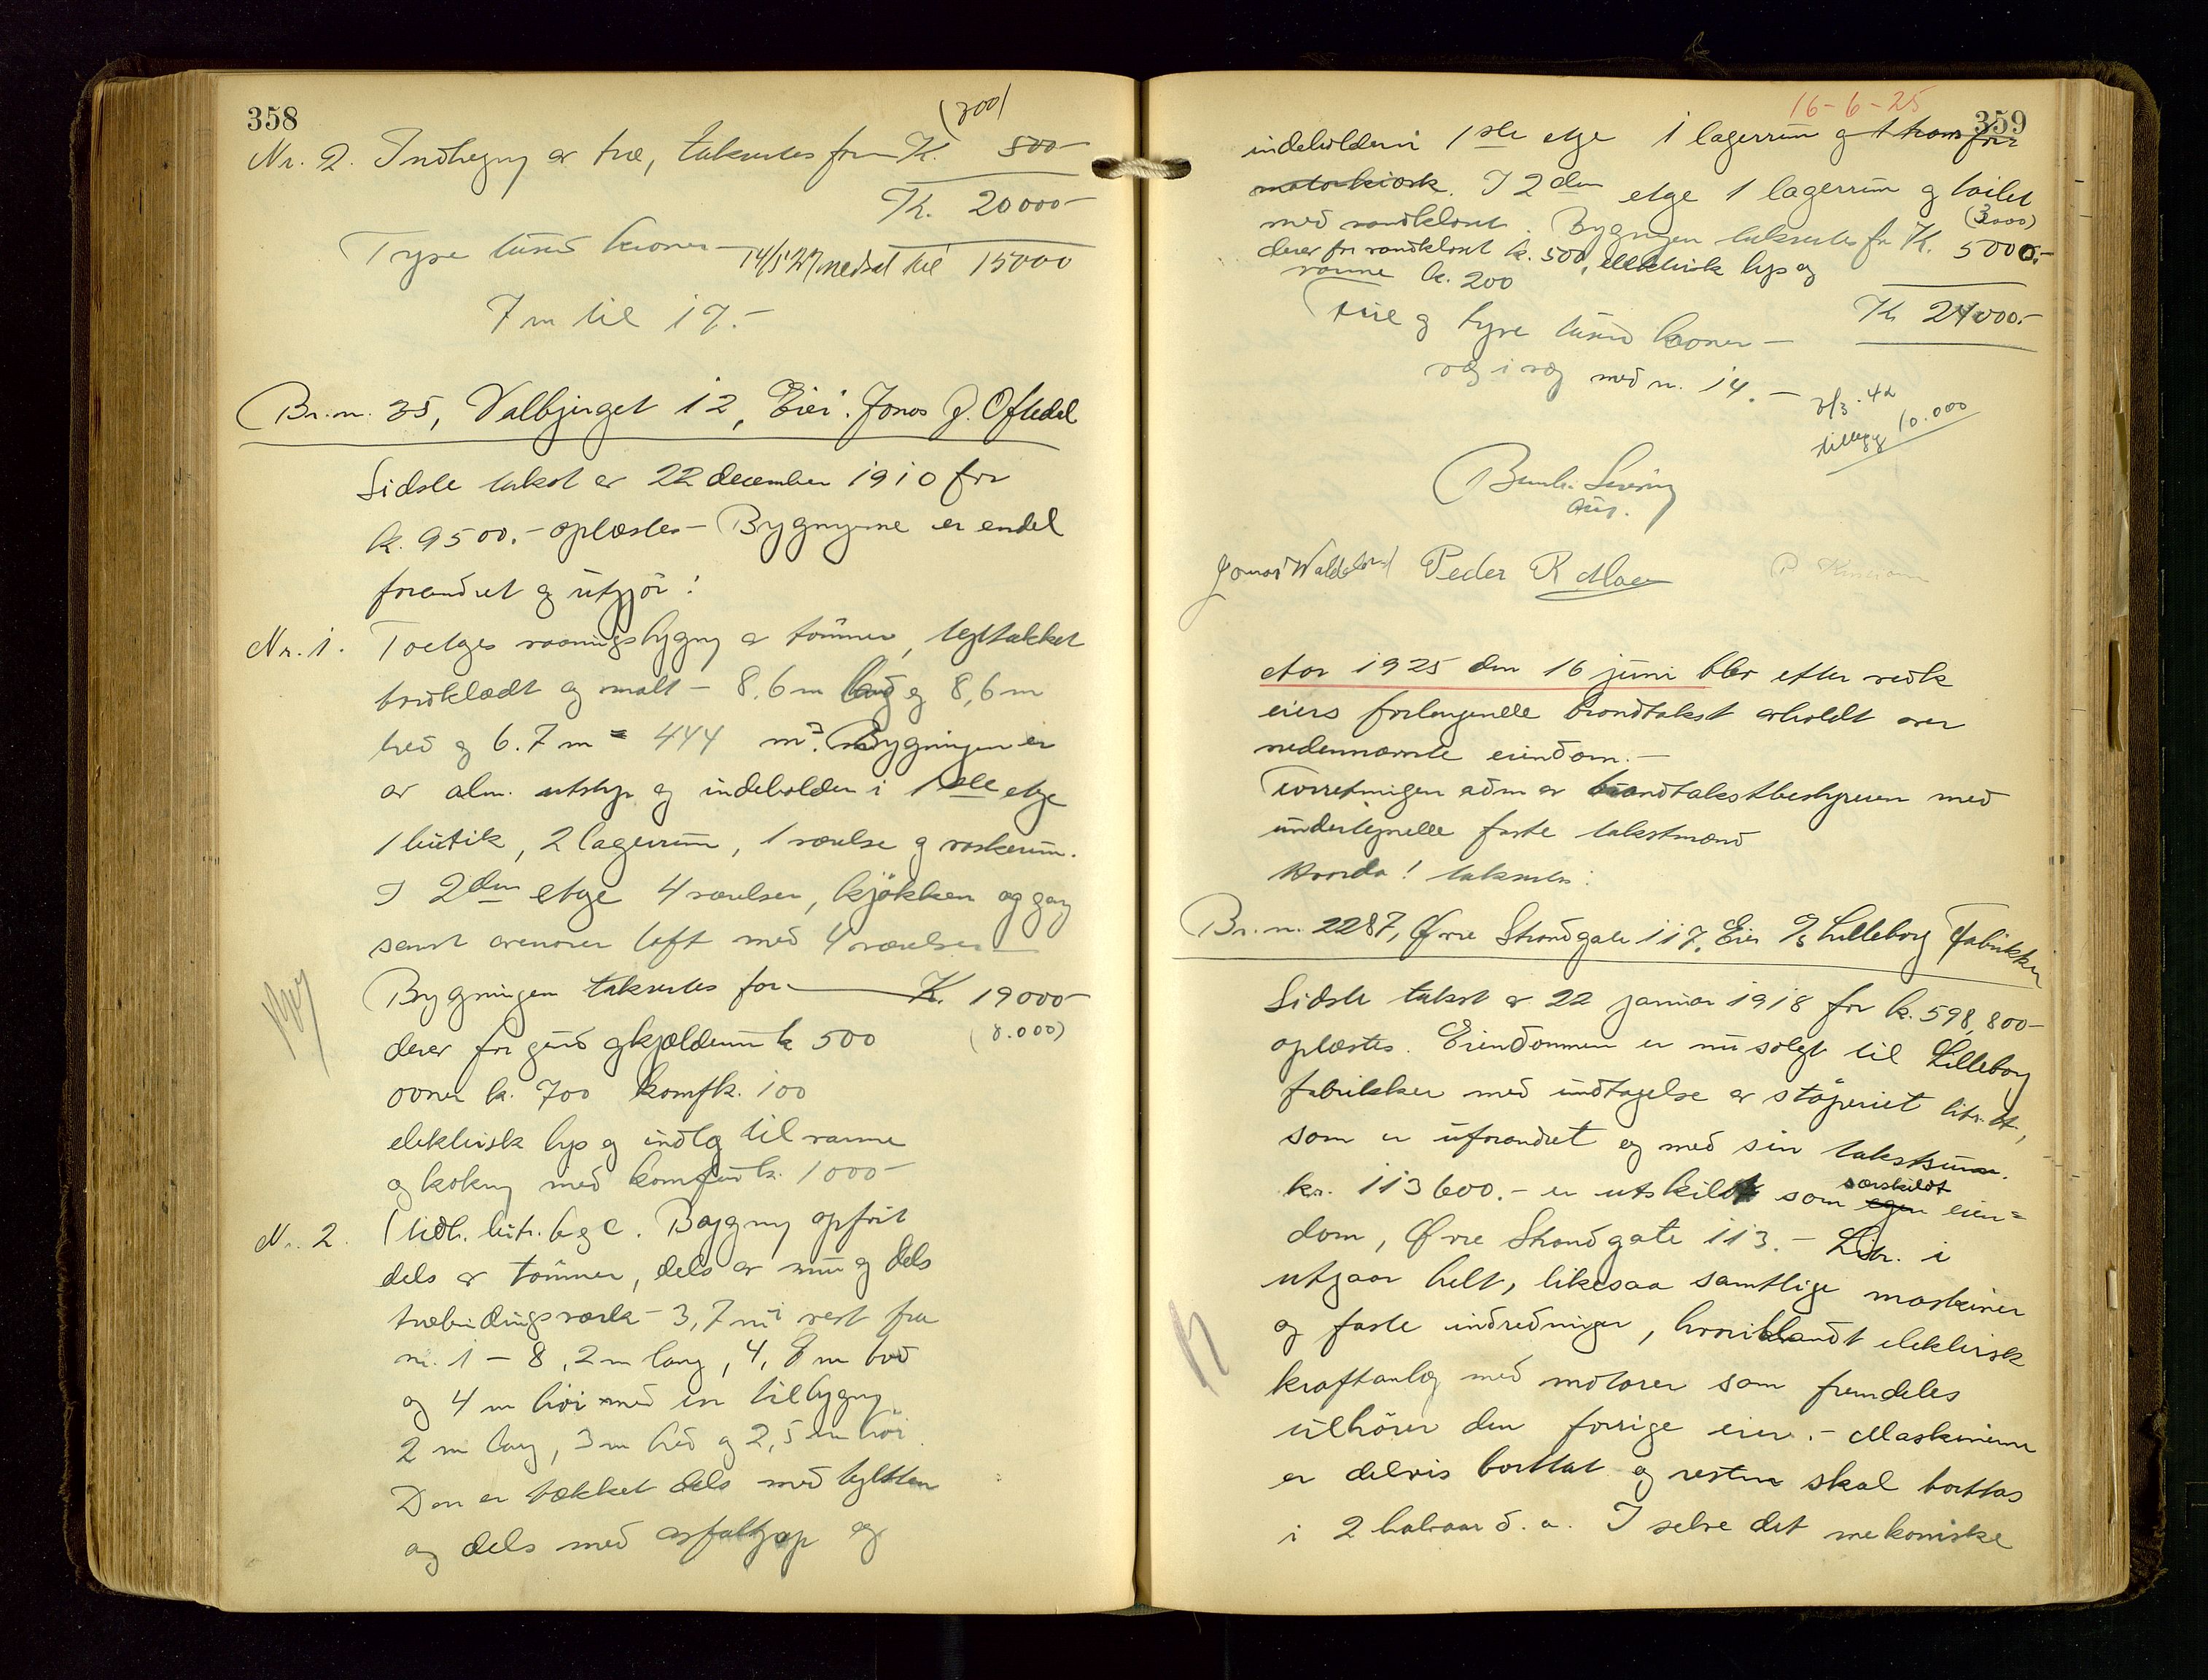 358
(300)
Nr. 2. Indhegny er træ, takseres for K. 500-
K. 20000-
Tyve tusind kroner - 14/5 27 nedsat til 15000
7 m til 17.-
Br.nr. 35, Valbjerget 12, Eier: Jonas J. Oftedal
Sidste takst er 22 december 1910 for
k. 9500.- oplæstes - Bygnyerne er endel
forandret og utgjör:
Nr. 1. Toetges vaaningsbygny a tømmer, tegltækket
bordklædt og malt - 8.6 m lang og 8,6 m
bred og 6.7 m = 444 m³. Bygningen er
av alm. utstyr og indeholder i 1ste etge
1 butik, 2 lagerrum, 1 værelse og vaskerum.
I 2den etge 4 værelser, kjøkken og gang
samt ovenover loft med 4 værelser
Bygningen takseres for K. 19000-
derav for grund og kjælderrum k 500 (8.000)
ovner k. 700 komf k. 100
elektrisk lys og indlg til varme
og kokny med komfur k. 1000-
Nr. 2 (tidl. litr. b og c. Bygny opfört
dels av tømmer, dels av mur og dels
træbindingsverk - 3,7 m i vest fra
nr. 1 - 8,2 m lang, 4,8 m bred
og 4 m höi med en tilbygny
2 m lang, 3 m bred og 2,5 m höi.
Den er tækket dels med teglsten
og dels med asfaltpap og
16-6-25
359
indeholder i 1ste etge 1 lagerrum og 1 kran for
motorkiosk. I 2den etge 1 lagerrum og toilet
med vandklosæt. Bygnyen takseres for K. 5000.- (3000)
derav for vandklosæt k. 500, elektrisk lys og
varme k. 200
K 24000.-
Fire og tyve tusind kroner -
væg i væg med nr. 14. -
3/3.42
tillegg 10.000
Peder R. Moe
Aar 1925 den 16 juni blev efter vedk
eiers forlangende brandtakst avholdt over
nedennævnte eiendom.-
Forretningen adm av brandtakstbestyreren med
undertegnede faste takstmænd
Hvorda! takseres:
Br.nr. 2287, Øvre Strandgate 117, Eier A/S Lilleborg Fabrikker
Sidste takst er 22 januar 1918 for k. 598,800-
oplæstes. Eiendommen er nu solgt til Lilleborg
fabrikker med undtagelse av støperiet litr. A,
som er uforandret og med sin takstsum.
kr. 113600.- er utskildt som egen særskildt eien=
dom, Øvre Strandgate 113.- Litr. i
utgaar helt, likesaa samtlige maskiner
og faste indredninger, hvoriblandt elektrisk
kraftanlæg med motorer som fremdeles
tilhører den forrige eier.- Maskinerne
er delvis borttat og resten skal borttas
i 2 halvaar d. a. I selve det mekaniske